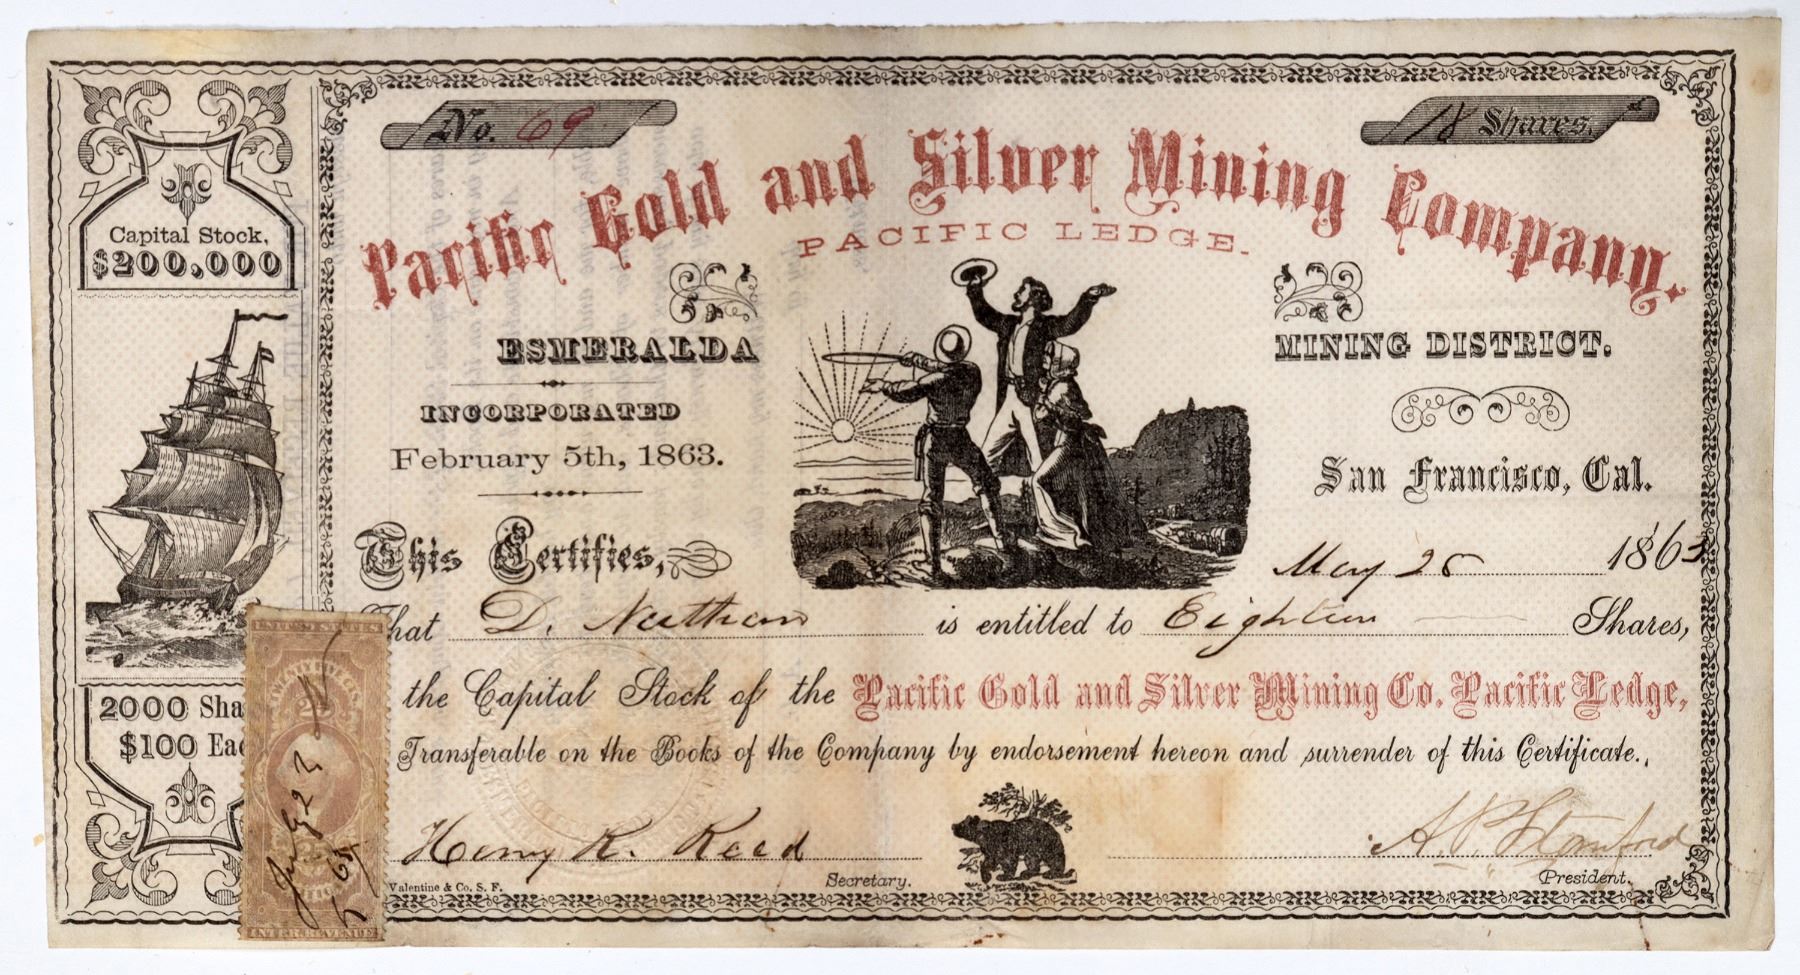 No. 69
18 Shares.
Pacific Gold and Silver Mining Company.
PACIFIC LEDGE.
Capital Stock,
$200,000
ESMERALDA MINING DISTRICT.
INCORPORATED
February 5th, 1863.
San Francisco, Cal.
This Certifies,
May 25 1863
That D. Nathan is entitled to Eighteen Shares,
the Capital Stock of the Pacific Gold and Silver Mining Co. Pacific Ledge,
Transferable on the Books of the Company by endorsement hereon and surrender of this Certificate.
2000 Sha
$100 Eac
Henry K. Reed
Secretary.
A. P. Stanford
President.
Valentine & Co. S. F.
UNITED STATES
INTER. REVENUE